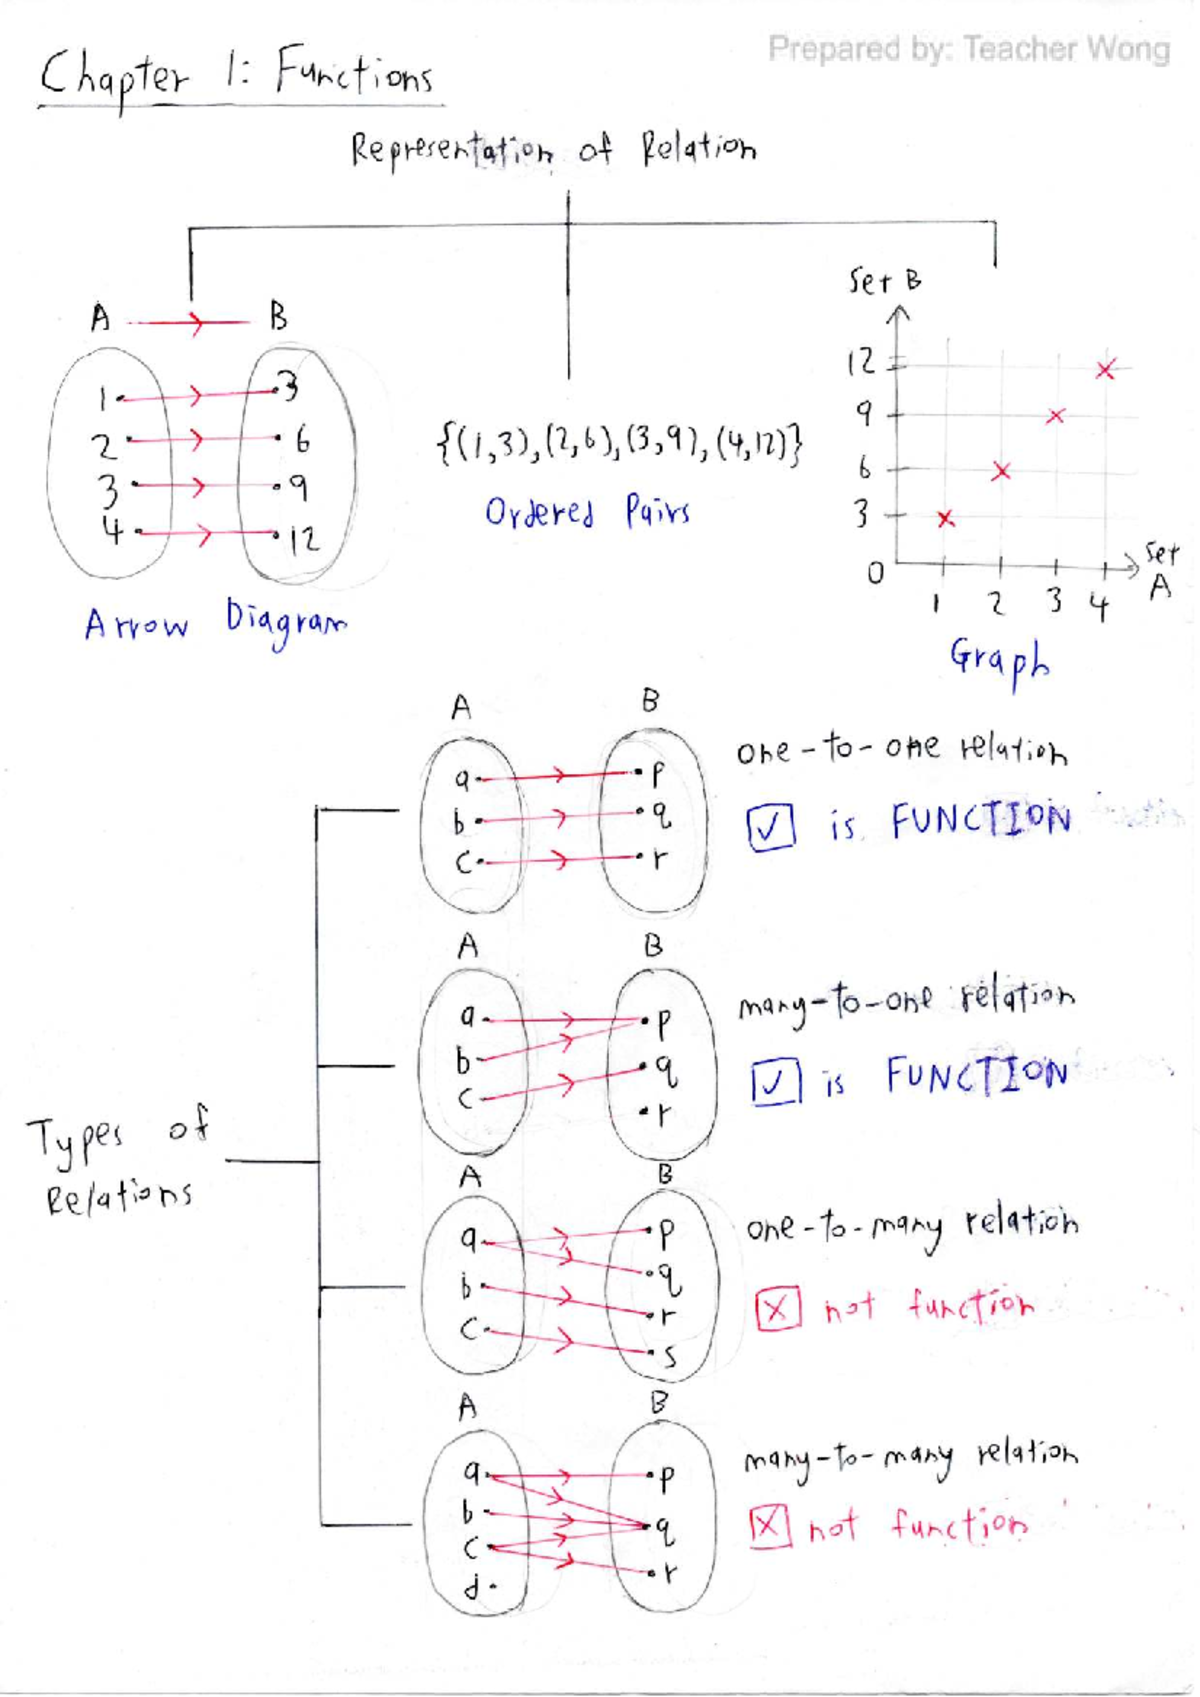 Prepared by: Teacher Wong
Chapter 1: Functions
Representation of Relation
A B
1 3
2 6
3 9
4 12
Arrow Diagram
{(1,3),(2,6),(3,9),(4,12)}
Ordered Pairs
Set B
12
9
6
3
0
1 2 3 4
Set
A
Graph
Types of
Relations
A B
a p
b q
c r
one-to-one relation
is FUNCTION
A B
a p
b q
c r
many-to-one relation
is FUNCTION
A B
a p
b q
c r
s
one-to-many relation
not function
A B
a p
b q
c r
d
many-to-many relation
not function